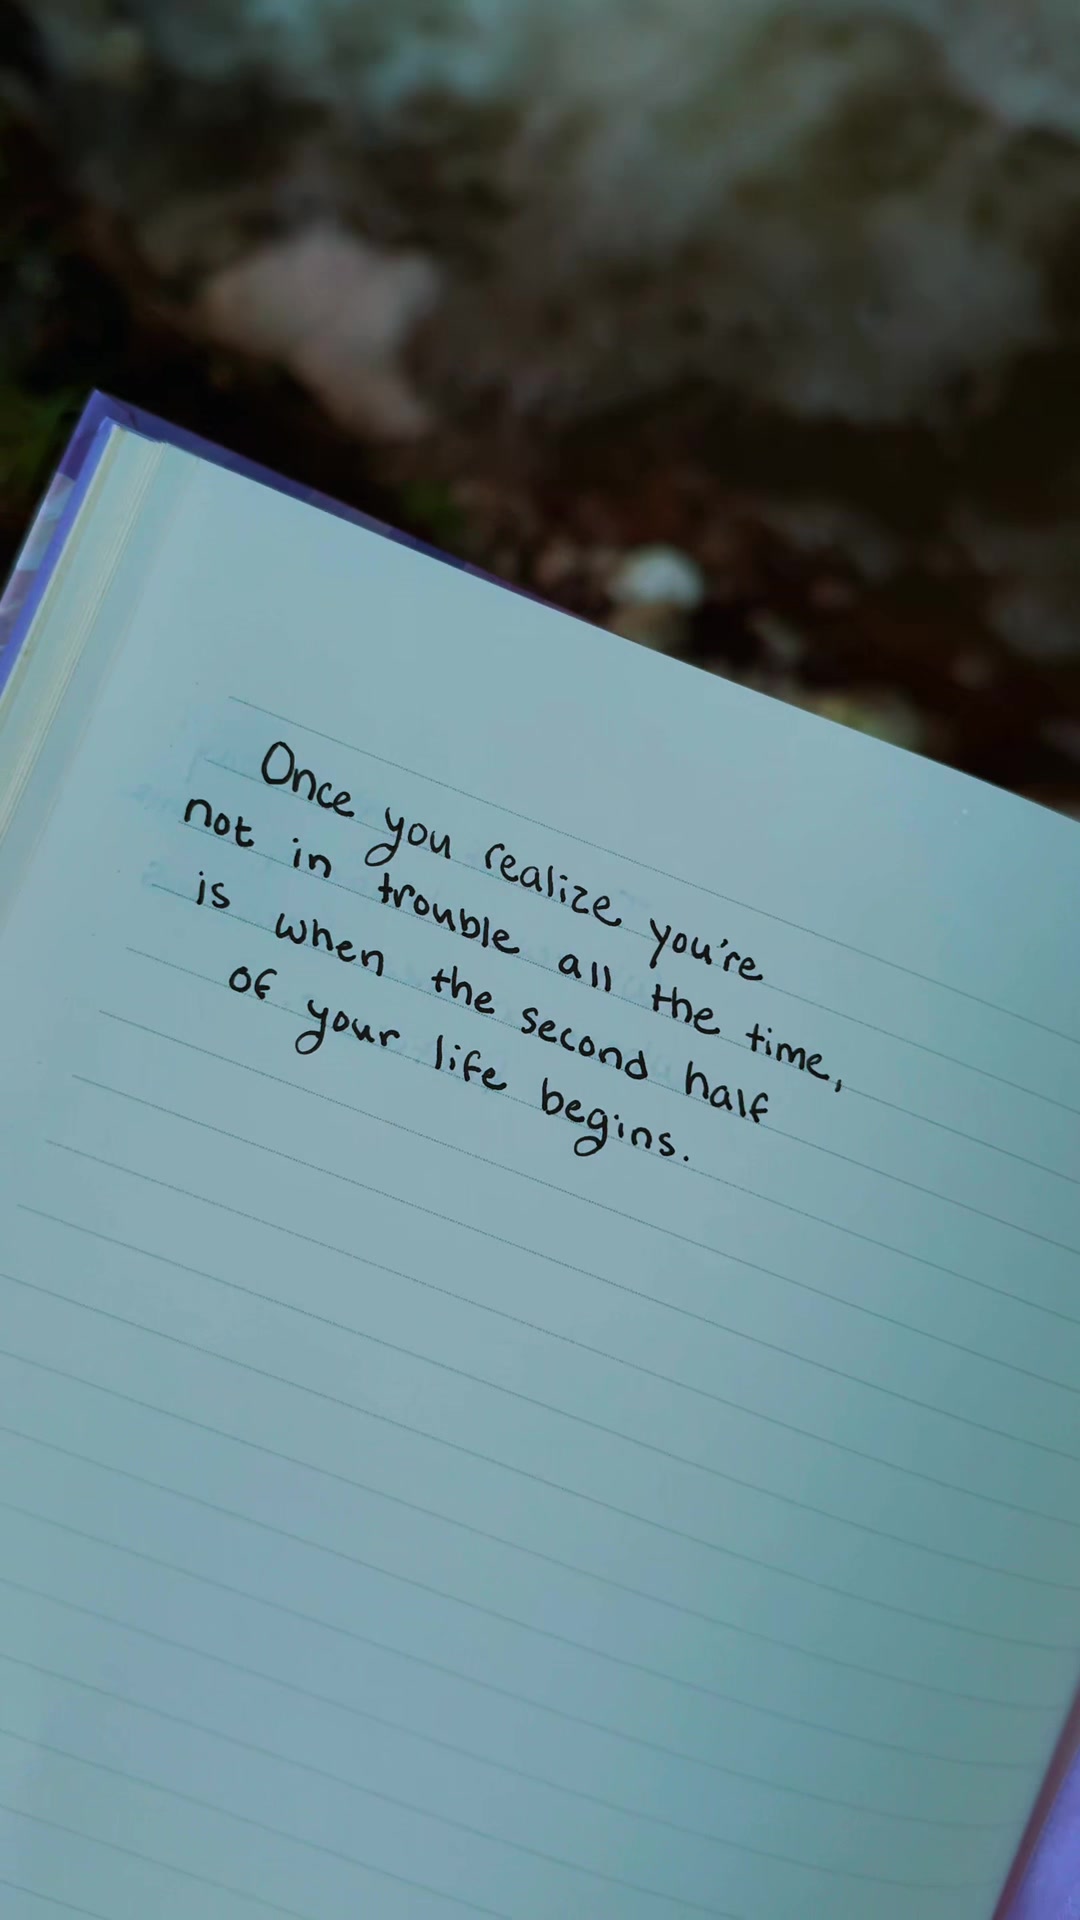 Once you realize you're
not in trouble all the time,
is when the second half
of your life begins.